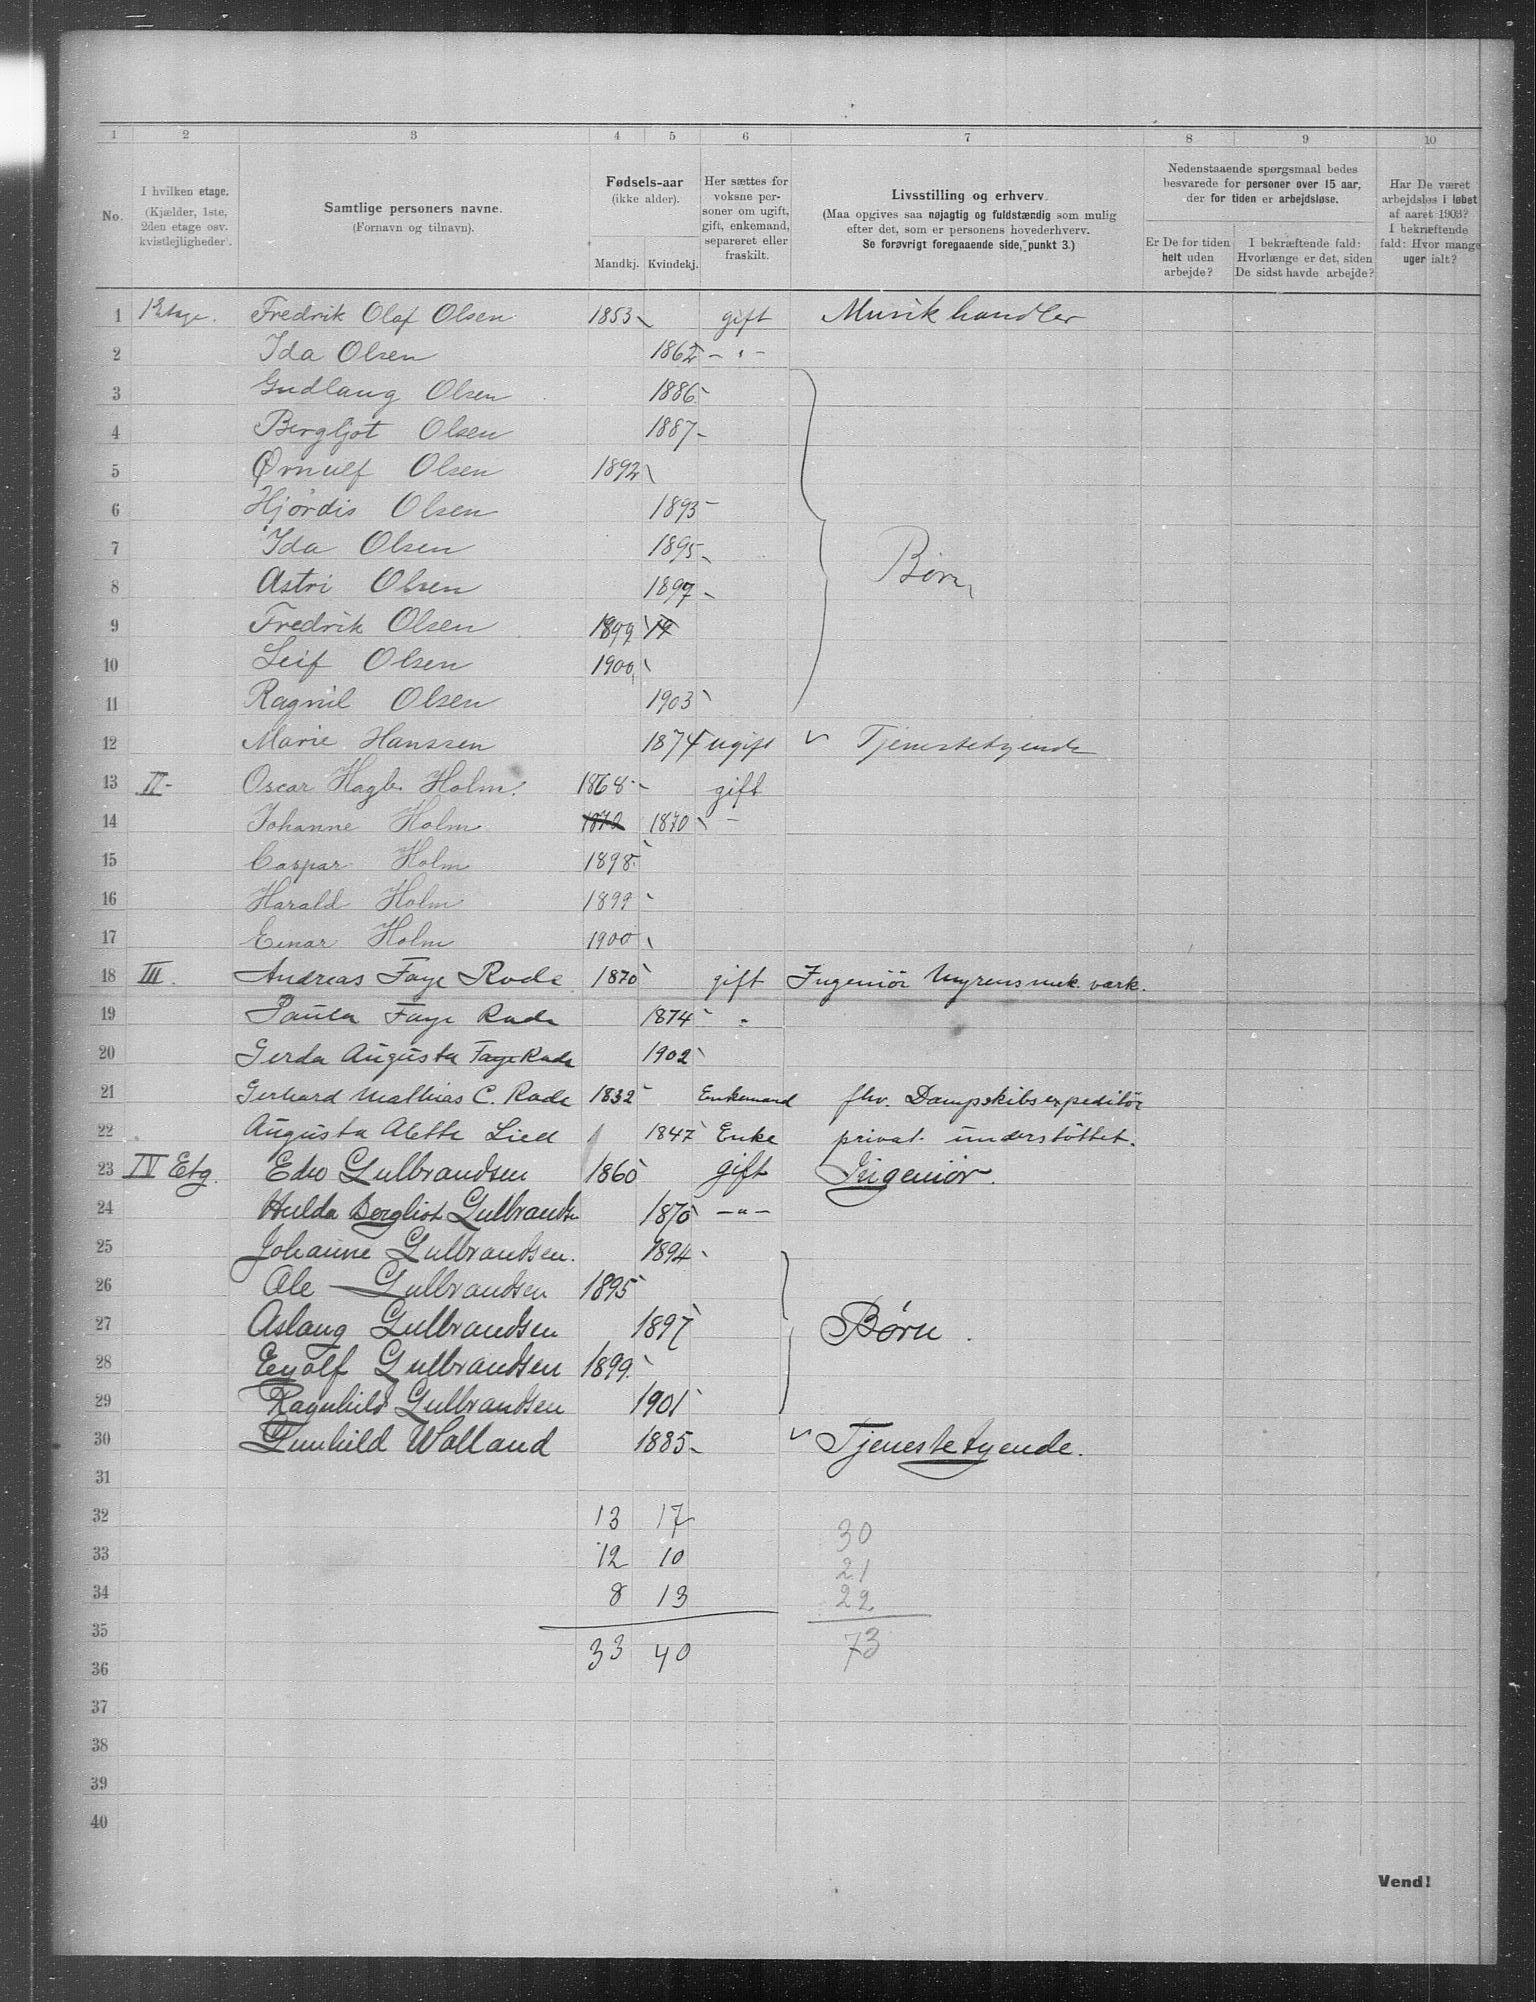 1 2 3 4 5 6 7 8 9 10
No.
I hvilken etage.
(Kjælder, 1ste,
2den etage osv.
kvistlejligheder).
Samtlige personers navne.
(Fornavn og tilnavn).
Fødsels-aar
(ikke alder).
Mandkj. Kvindekj.
Her sættes for
voksne per-
soner om ugift,
gift, enkemand,
separeret eller
fraskilt.
Livsstilling og erhverv.
(Maa opgives saa nøjagtig og fuldstændig som mulig
efter det, som er personens hovederhverv.
Se forøvrigt foregaaende side, punkt 3.)
Nedenstaaende spørgsmaal bedes
besvarede for personer over 15 aar,
der for tiden er arbejdsløse.
Er De for tiden
helt uden
arbejde?
I bekræftende fald:
Hvorlænge er det, siden
De sidst havde arbejde?
Har De været
arbejdsløs i løbet
af aaret 1903?
I bekræftende
fald: Hvor mange
uger ialt?
1 1 Etage. Fredrik Olaf Olsen 1853 gift Musikhandler
2 Ida Olsen 1862 - " -
3 Gudlaug Olsen 1886
4 Bergljot Olsen 1887
5 Ørnulf Olsen 1892
6 Hjørdis Olsen 1893
7 Ida Olsen 1895
8 Astri Olsen 1897 Børn
9 Fredrik Olsen 1899 19
10 Leif Olsen 1900
11 Ragnil Olsen 1903
12 Marie Hanssen 1874 ugift Tjenestetyende
13 II- Oscar Hagb. Holm. 1868 gift
14 Johanne Holm 1870 1870 -
15 Caspar Holm 1898
16 Harald Holm 1899
17 Einar Holm 1900
18 III. Andreas Faye Rode 1870 gift Ingeniör Myrens mek. værk.
19 Paula Faye Rode 1874 "
20 Gerda Augusta Faye Rode 1902
21 Gerhard Mathias C. Rode 1832 Enkemand fhv. Dampskibsexpeditör
22 Augusta Alette Lied 1847 Enke privat. understöttet.
23 IV Etg. Edw Gulbrandsen 1860 gift Ingeniör.
24 Hulda Bergliot Gulbrandsen 1870 - " -
25 Johanne Gulbrandsen. 1894
26 Ole Gulbrandsen 1895
27 Aslaug Gulbrandsen 1897 Børn.
28 Eyolf Gulbrandsen 1899
29 Ragnhild Gulbrandsen 1901
30 Gunhild Walland 1885 Tjenestetyende.
31
32 13 17 30
33 12 10 21
34 8 13 22
35 33 40 73
36
37
38
39
40
Vend!